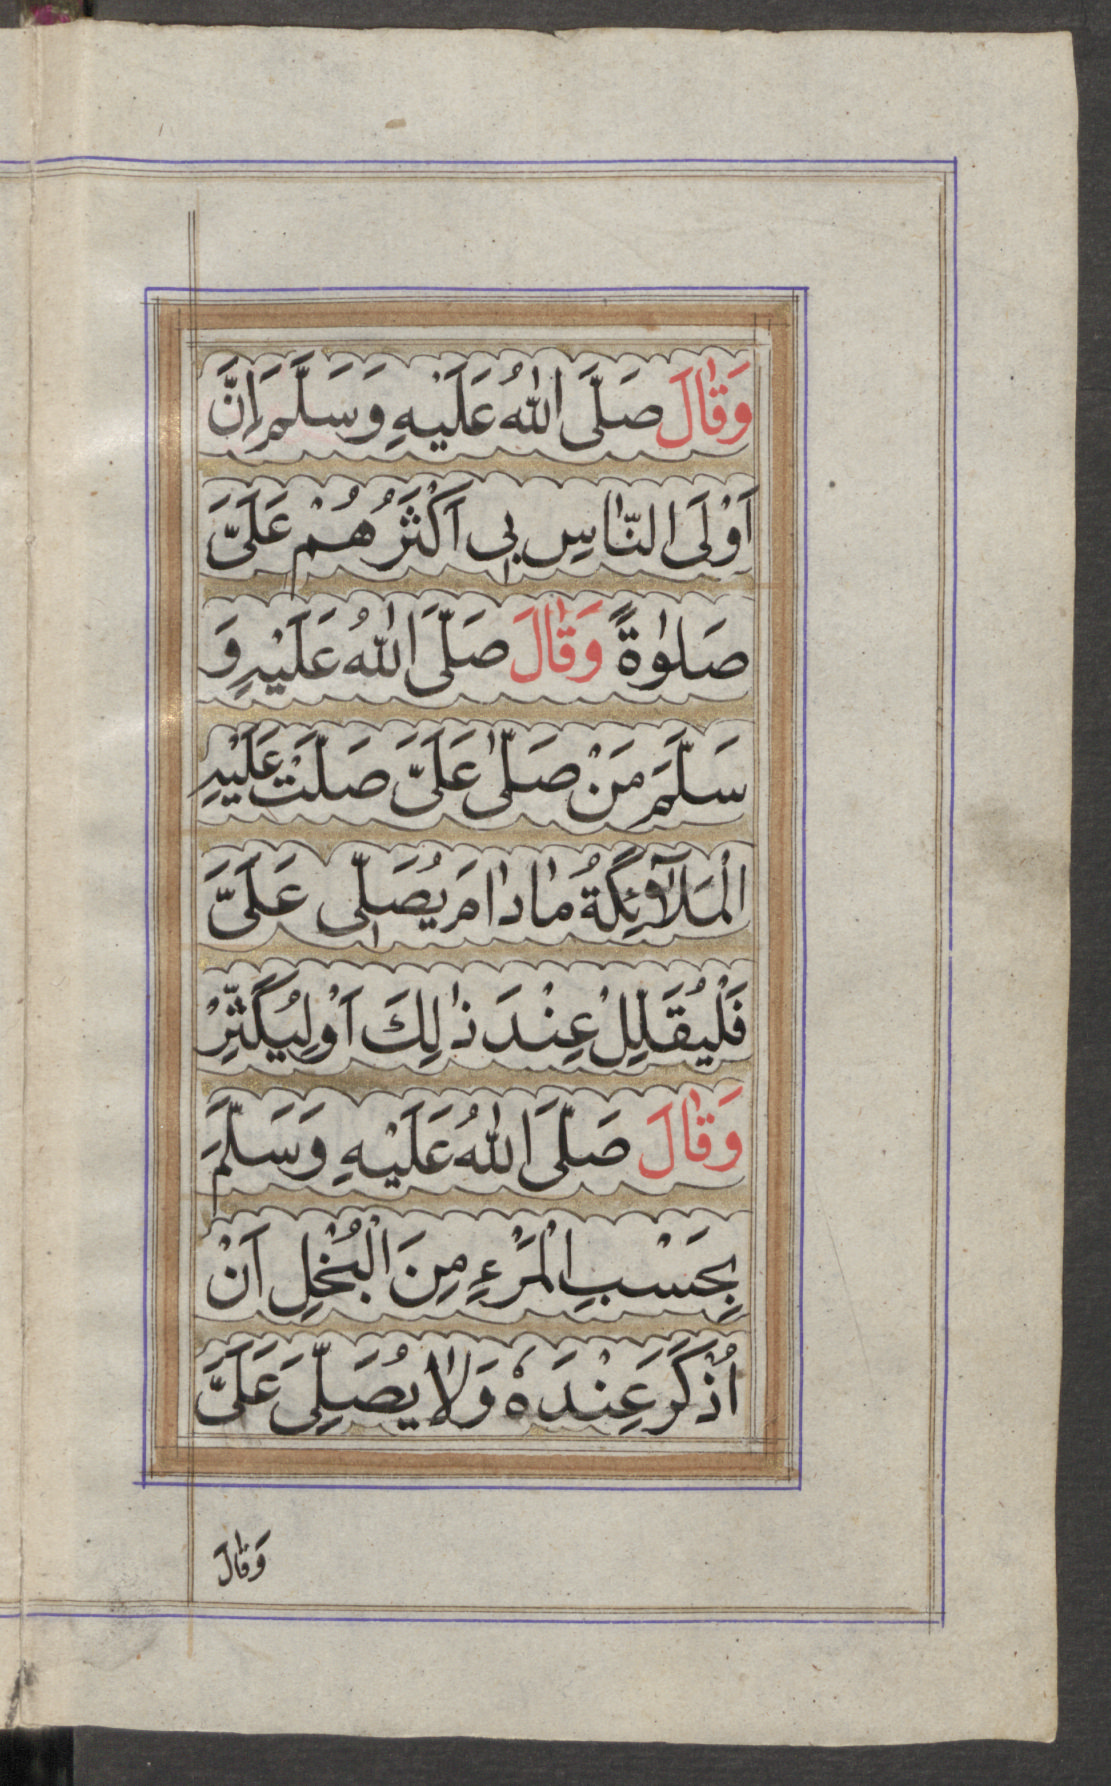 وَقَالَ صَلَّى اللّٰهُ عَلَيْهِ وَسَلَّمَ اِنَّ
اَوْلَى النَّاسِ بِي اَكْثَرُهُمْ عَلَيَّ
صَلٰوةً وَقَالَ صَلَّى اللّٰهُ عَلَيْهِ وَ
سَلَّمَ مَنْ صَلّٰى عَلَيَّ صَلَّتْ عَلَيْهِ
الْمَلَآئِكَةُ مَادَامَ يُصَلِّي عَلَيَّ
فَلْيُقَلِّلْ عِنْدَ ذٰلِكَ اَوْلِيُكَثِّرْ
وَقَالَ صَلَّى اللّٰهُ عَلَيْهِ وَسَلَّمَ
بِحَسْبِ الْمَرْءِ مِنَ الْبُخْلِ اَنْ
اُذْكَرَ عِنْدَهٗ وَلَا يُصَلِّيَ عَلَيَّ
وَقَالَ